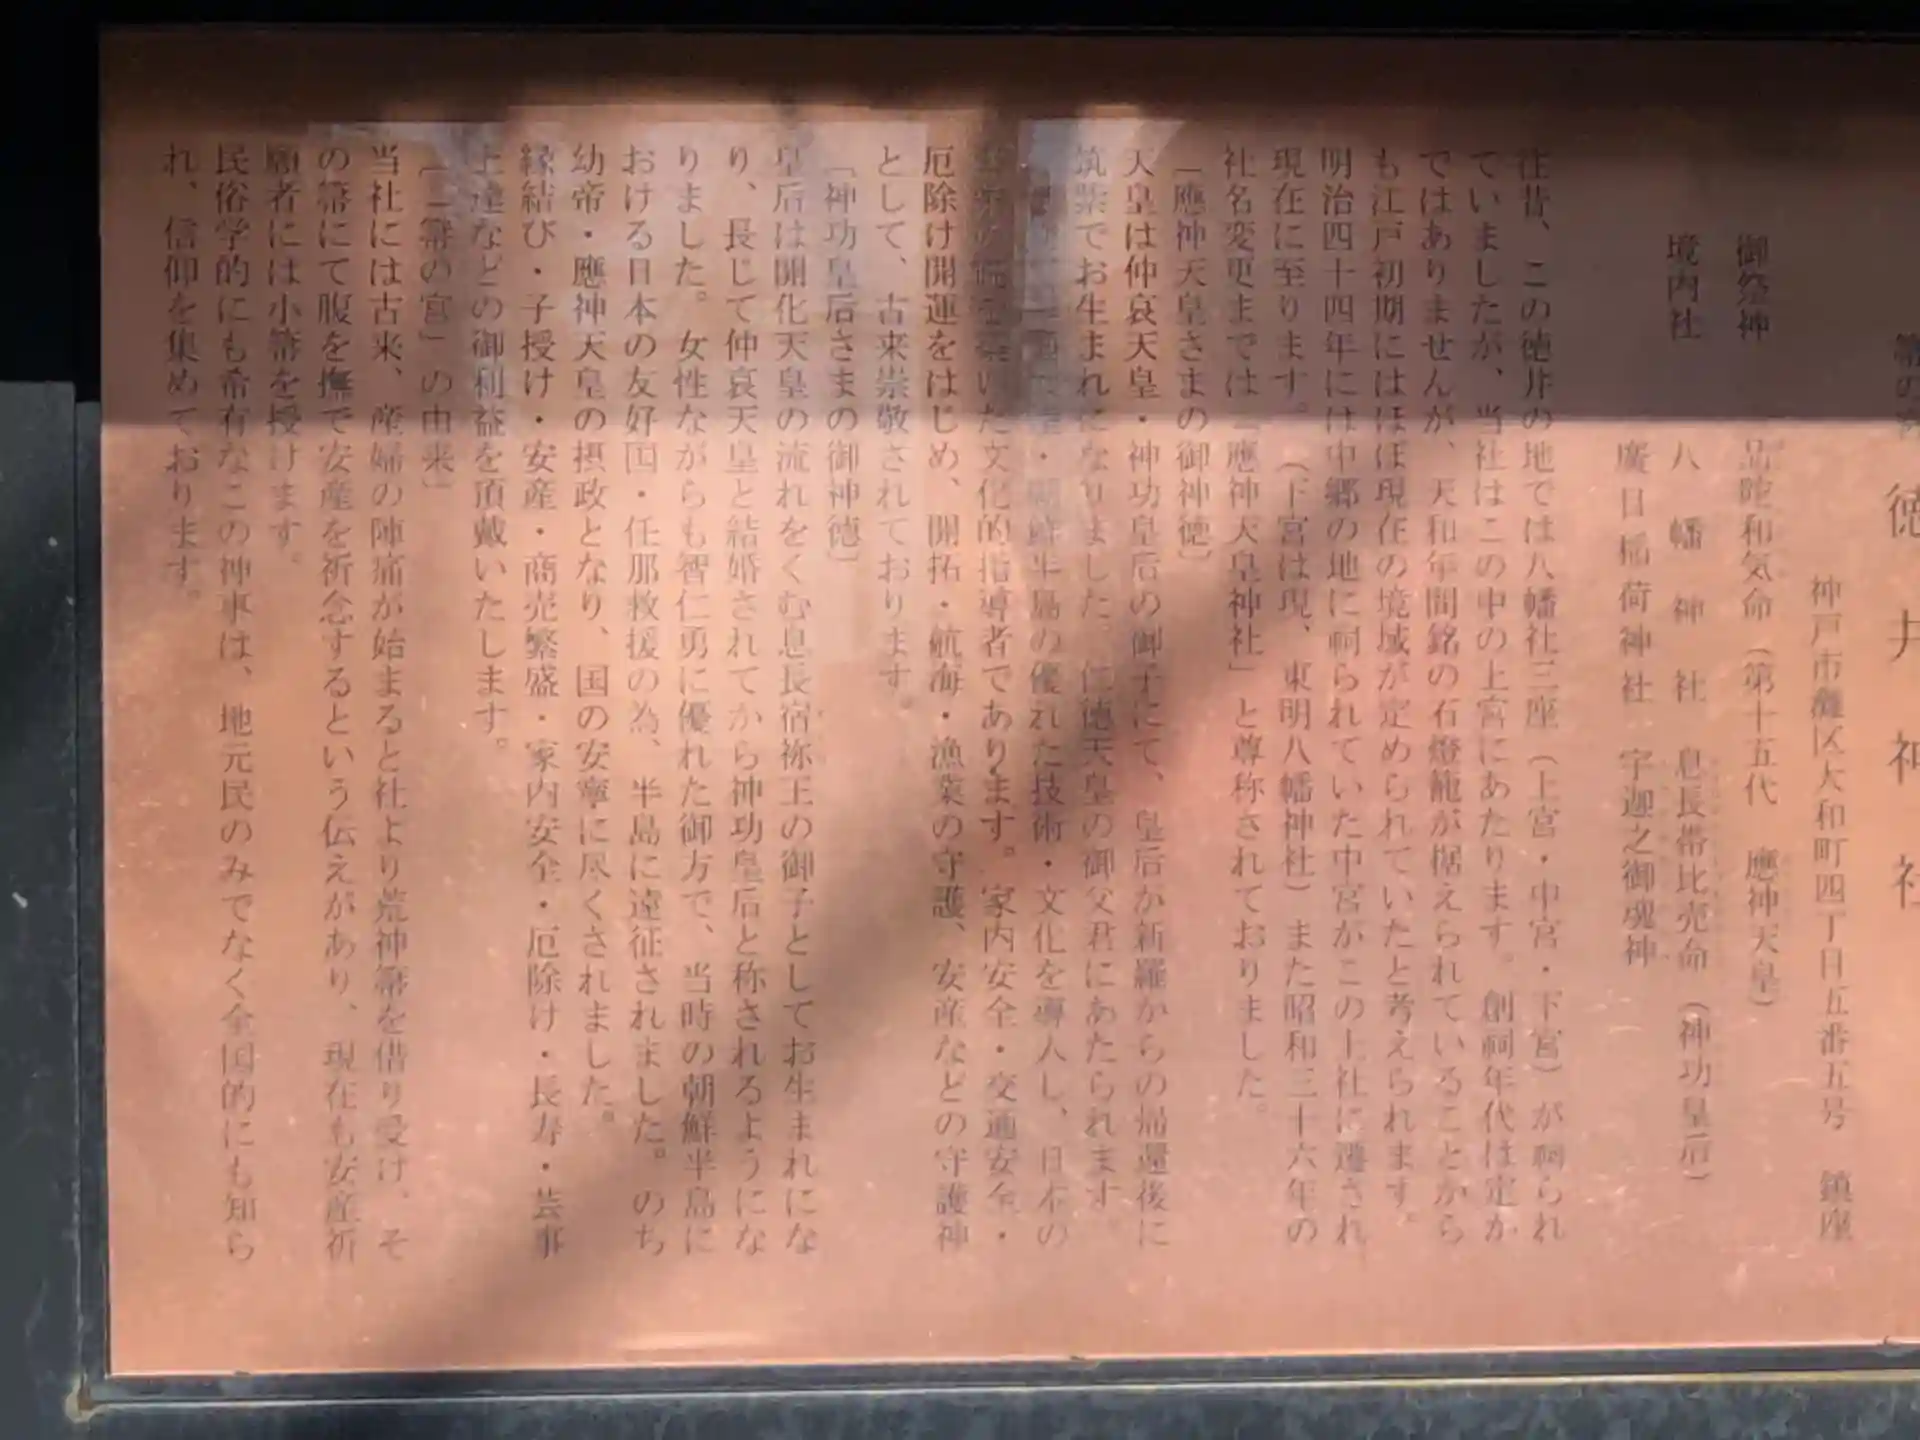 箒の宮
徳井神社
神戸市灘区大和町四丁目五番五号　鎮座
御祭神　品陀和気命（第十五代　應神天皇）
境内社　八幡神社　息長帯比売命（神功皇后）
慶日稲荷神社　宇迦之御魂神
往昔、この徳井の地では八幡社三座（上宮・中宮・下宮）が祠られ
ていましたが、当社はこの中の上宮にあたります。創祠年代は定か
ではありませんが、天和年間銘の石燈籠が据えられていることから
も江戸初期にはほぼ現在の境域が定められていたと考えられます。
明治四十四年には中郷の地に祠られていた中宮がこの上社に遷され
現在に至ります。（下宮は現、東明八幡神社）また昭和三十六年の
社名変更までは「應神天皇神社」と尊称されておりました。
〔應神天皇さまの御神徳〕
天皇は仲哀天皇・神功皇后の御子にて、皇后が新羅からの帰還後に
筑紫でお生まれになりました。仁徳天皇の御父君にあたられます。
・朝鮮半島の優れた技術・文化を導入し、日本の
の礎を築いた文化的指導者であります。家内安全・交通安全・
厄除け開運をはじめ、開拓・航海・漁業の守護、安産などの守護神
として、古来崇敬されております。
〔神功皇后さまの御神徳〕
皇后は開化天皇の流れをくむ息長宿祢王の御子としてお生まれにな
り、長じて仲哀天皇と結婚されてから神功皇后と称されるようにな
りました。女性ながらも智仁勇に優れた御方で、当時の朝鮮半島に
おける日本の友好国・任那救援の為、半島に遠征されました。のち
幼帝・應神天皇の摂政となり、国の安寧に尽くされました。
縁結び・子授け・安産・商売繁盛・家内安全・厄除け・長寿・芸事
上達などの御利益を頂戴いたします。
〔「箒の宮」の由来〕
当社には古来、産婦の陣痛が始まると社より荒神箒を借り受け、そ
の箒にて腹を撫で安産を祈念するという伝えがあり、現在も安産祈
願者には小箒を授けます。
民俗学的にも希有なこの神事は、地元民のみでなく全国的にも知ら
れ、信仰を集めております。